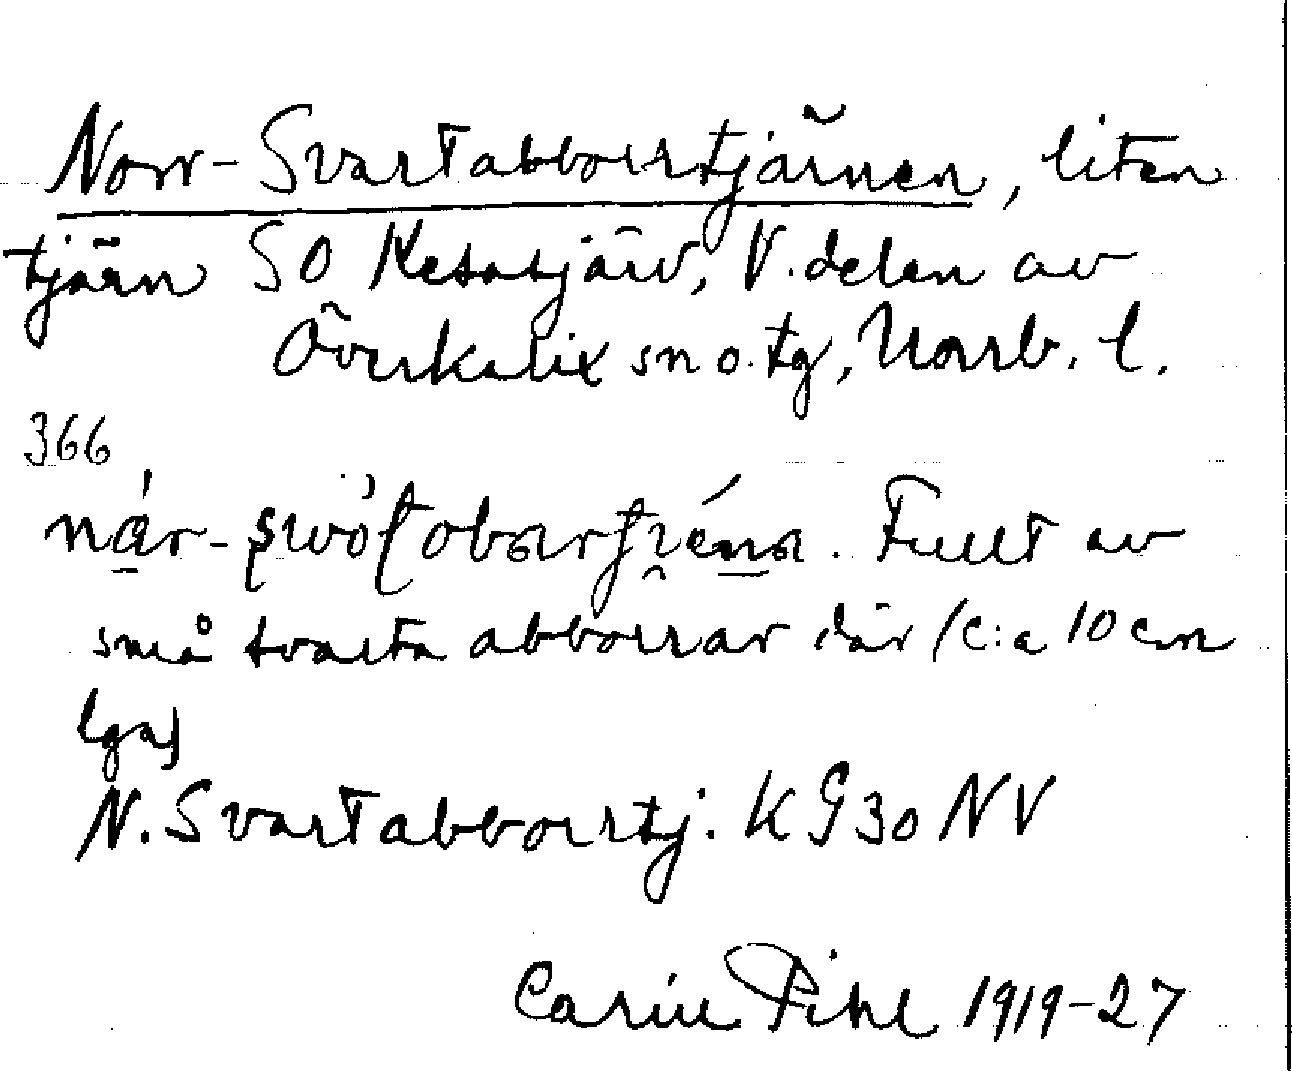 Norr-Svartabborrtjärnen, liten
tjärn SO Kesasjärv, V. delen av
Överkalix sn o. tg, Norrb. l.
366
Fullt av
små svarta abborrar där (c:a 10 cm
lga)
N. Svartabborrtj. K G 30 NV
Carin Pihl 1919-27